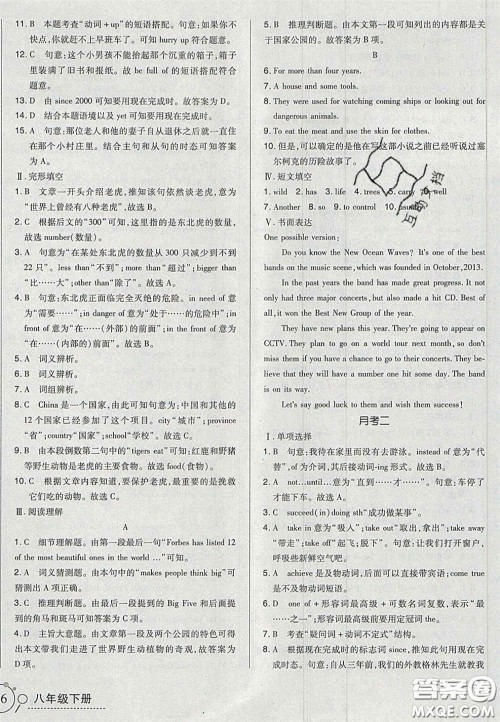 11. B　本题考查“动词＋up”的短语搭配。句意：快点，你就赶不上早班车了。可知 hurry up 符合题意。
12. B　句意：这个小男孩不能抬起那个沉重的箱子，箱子里装满了旧书和报纸。故 be full of 的短语搭配符合题意。
13. D　由 since 2000 可知要用现在完成时。故答案为 D。
14. D　结合本题语境以及 yet 可知要用现在完成时。
15. A　句意：那位老人和他的妻子自从退休以来一直住在那个小村庄里。结合从句的时态可知答案为 A。
Ⅱ. 完形填空
1. B　文章一开头介绍老虎，推知该句依然谈及老虎，意为“世界上曾经有八种老虎”。故选 B。
2. C　根据后文的“300”可知，意为“东北虎的数量”。故选 number(数量)。
3. A　句意为“在某处东北虎的数量从 300 只减少到不到 22 只”。less than“不到”；more than“超过”；bigger than“比……大”；different from“与……不同”。故选 A。
4. B　句意：东北虎正面临完全灭绝的危险。in need of 意为“需要”；in danger of 意为“处于……的危险中”；in front of 意为“在……(外部)的前面”；in the front of 意为“在……(内部)的前面”。故选 B。
5. A　词义辨析。
6. A　词义辨析。
7. A　词组辨析。
8. C　China 是一个国家，由此可知句意为：中国和其他的 12 个国家已经参与了这个项目。city“城市”；province“省”；country“国家”；school“学校”。故选 C。
9. B　由本段倒数第二句中的“tigers eat”可知：红鹿和野猪等野生动物是老虎的主要食物。故选 food(食物)。
10. C　根据文章内容可知，要保护老虎，就要挽救它们吃的动物。故选 C。
Ⅲ. 阅读理解
A
1. C　细节理解题。由第一段第一句“Forbes has listed 12 of the most beautiful ones in the world …”可知。
2. A　词义猜测题。由本句中的“makes people think big”可知 A 项正确。
3. C　推理判断题。由最后一段提到的 Big Five 和后面提到的角马和斑马可知答案为 C 项。
4. D　主旨大意题。由全文及两个公园的特色可得出本文带我们走进了世界野生动植物的奇观，故答案为 D 项。
八年级下册
5. B　推理判断题。由本文第一段可知列出的内容都是关于国家公园的。故答案为 B 项。
B
6. For more than four years.
7. A house and some tools.
8. They were used for watching coming ships or looking out for dangerous animals.
9. To eat the meat and use the skin for clothes.
10. 但是，可以确定的是他在写这部小说之前可能听说过塞尔柯克的历险故事了。
Ⅳ. 短文填空
1. wild　2. has　3. life　4. trees　5. carry　6. well
7. Another　8. so　9. on　10. control
Ⅴ. 书面表达
One possible version:
Do you know the New Ocean Waves? It's one of the best bands on the music scene, which was founded in October, 2013. In the past years the band has made great progress. It not only had three major concerts, but also made a hit CD. Best of all, it won the Best New Group of the year.
They are planning to do more this year. They're going to appear on CCTV. They plan to go on a world tour next month, so don't miss them if you are interested in their concerts. They believe the band is on its way!
Let's say good luck to them and hope to hear more from them!
月考二
Ⅰ. 单项选择
1. B　句意：我待在家里而没有去游泳。instead of 意为“代替”，of 为介词，后接动词-ing 形式。
2. A　until 意为“直到”，not…until 意为“直到……才……”。
3. C　succeed (in) doing sth“成功做某事”。
4. D　take in 意为“吸入”；turn off“关上”；take away“带走”；take off“起飞；脱下”。句意：让我们打开窗户，呼吸些新鲜空气吧。
5. A　achieve 是及物动词，后直接接宾语；come true 是不及物动词短语。
6. D　one of＋形容词最高级＋可数名词复数，表示“最……的……之一”。
7. B　考查“疑问词＋动词不定式”结构。
8. A　since 引导时间状语从句时，从句用一般过去时，主句用现在完成时。句意：自从三年前，我们的外教格林先生就教我们